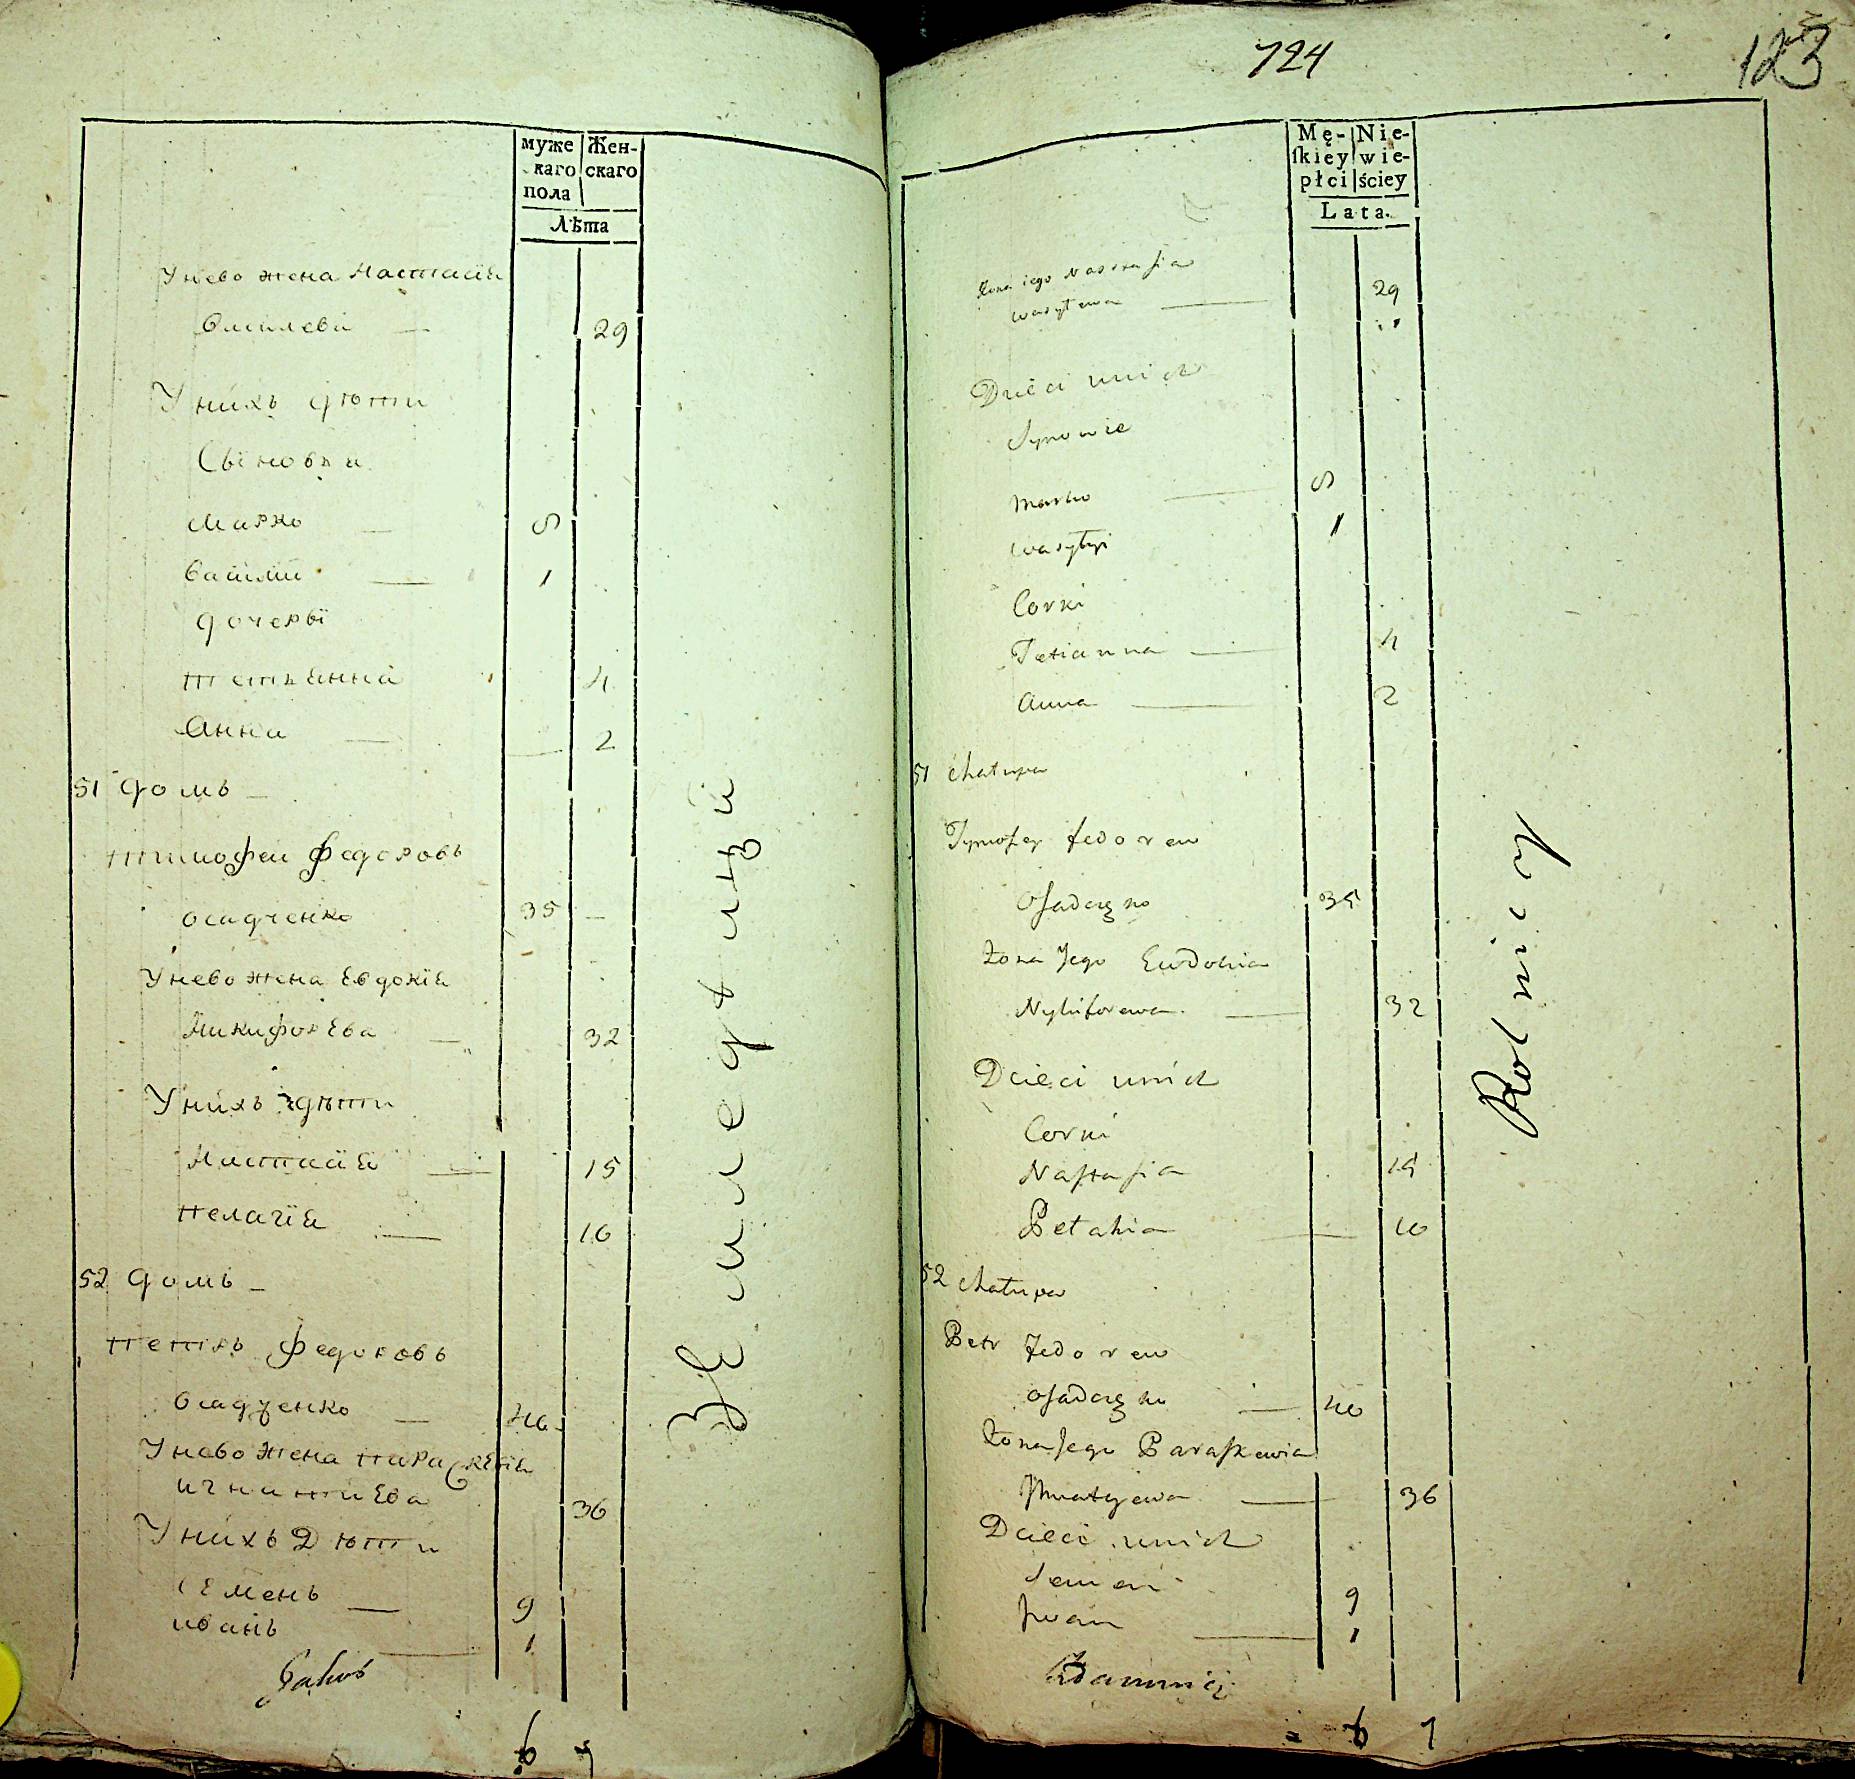 муже
скаго
пола
Жен-
скаго
Лѣта
У нево жена Настасия
Василева — 29
У нихъ дѣти
Сыновья
Марко — 5
Василий — 1
дочеры
тетянна 4
Анна — 2
51 домъ —
тимофей федоровъ
осадченко 35 —
У нево жена Евдокия
Никифорева — 32
У нихъ дѣти
Настасия — 15
пелагия — 10
52 домъ —
петръ федоровъ
осадченко — 40
У нево жена параскевия
игнатиева 36
У нихъ Дѣти
Семенъ — 9
иванъ — 1
Земледѣлцы
6 7
724
123
Mę-
ſkiey
płci
Nie-
wie-
ściey
Lata.
Żona iego Nastasia
Wasylewa — 29
Dzieci unich
Synowie
Marko — 5
Wasylyi 1
Corki
Tetianna — 4
Anna — 2
51 Chałupa
Tymofey fedorew
Oſadczko 35
Żona Jego Eudokia
Nykiforewa — 32
Dzieci unich
Corki
Naſtaſia 15
Pelahia — 10
52 Chałupa
Petr fedorew
Oſadczko — 40
Żona Jego Paraſkewia
— 36
Dzieci unich
Semen 9
Jwan — 1
Rolnicy
6 7